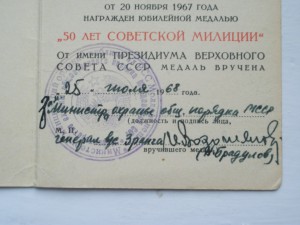 ОТ 20 НОЯБРЯ 1967 ГОДА
НАГРАЖДЕН ЮБИЛЕЙНОЙ МЕДАЛЬЮ
„50 ЛЕТ СОВЕТСКОЙ МИЛИЦИИ“
ОТ ИМЕНИ ПРЕЗИДИУМА ВЕРХОВНОГО
СОВЕТА СССР МЕДАЛЬ ВРУЧЕНА
„25“ июля 1968 г.
Министр охраны общ. порядка МССР
(должность и подпись лица,
М. П.
генерал 3 ранга
вручившего медаль)